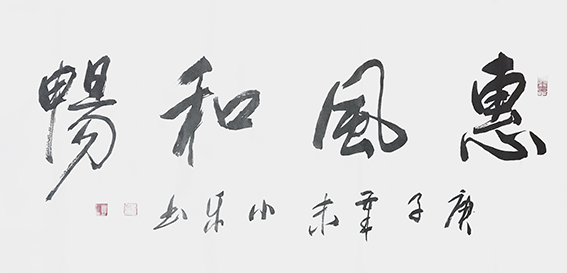 惠風和暢
庚子年末小乐书